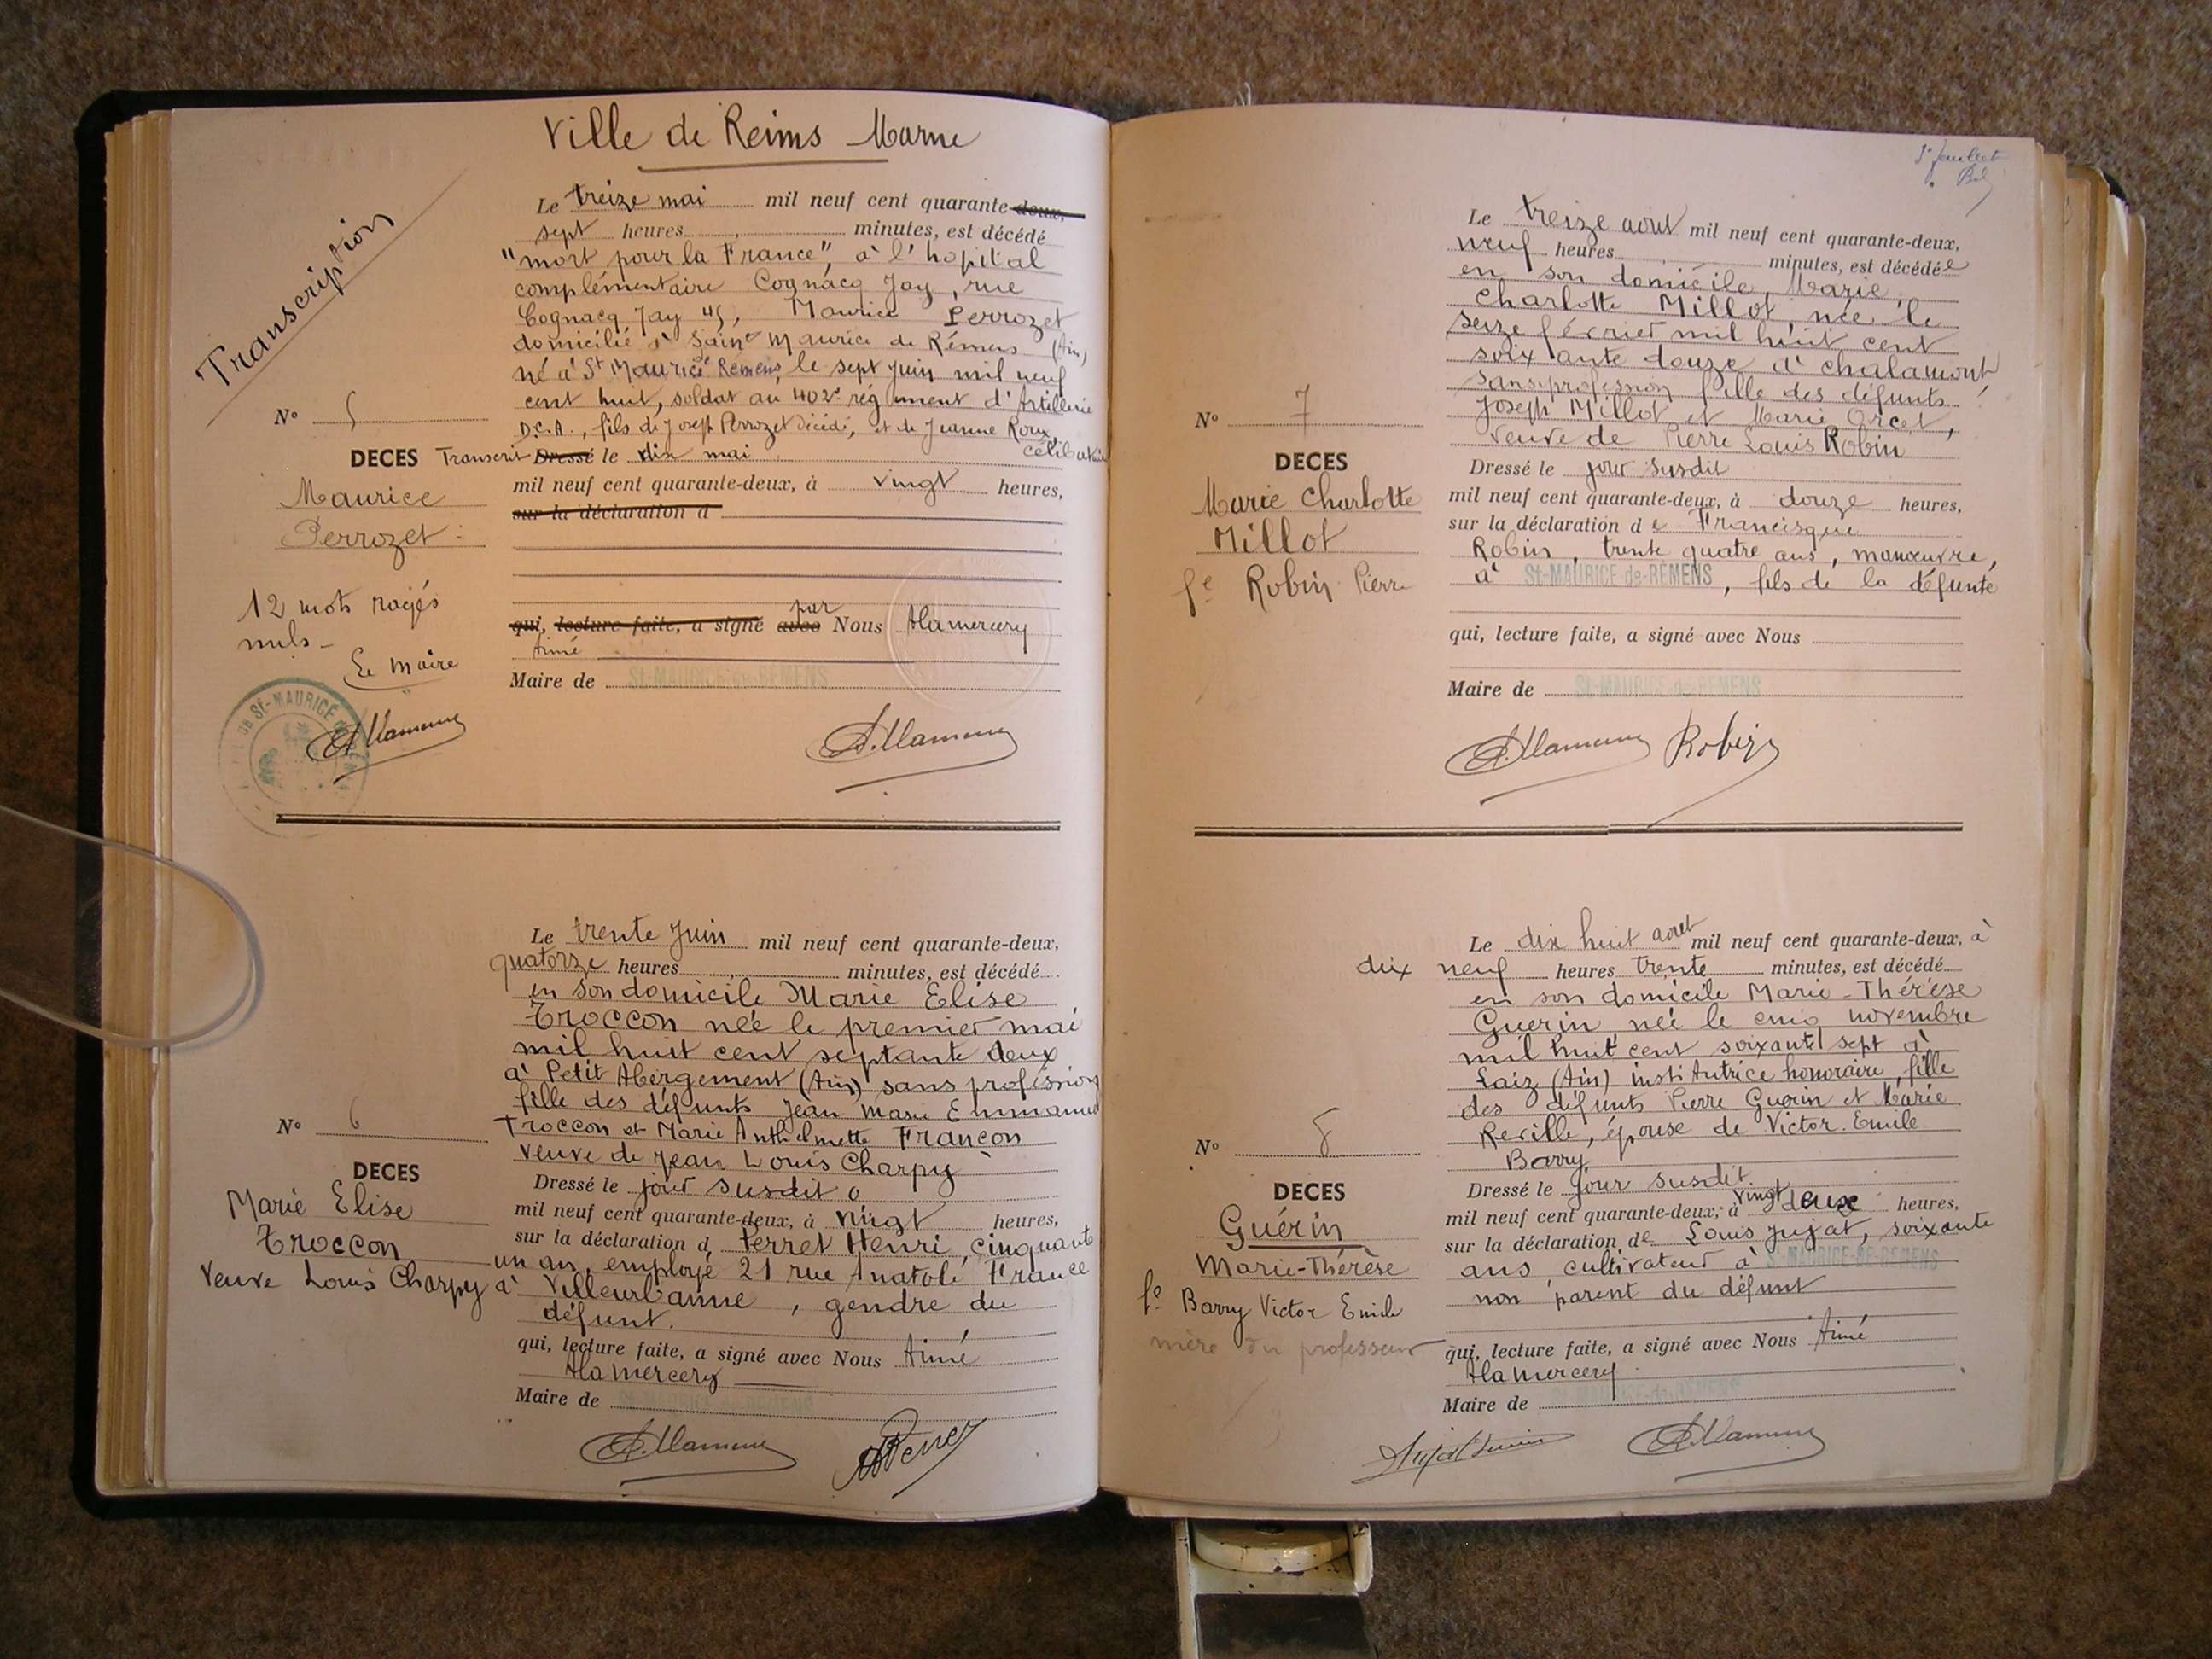 Ville de Reims Marne
Transcription
Le treize mai mil neuf cent quarante-deux,
sept heures minutes, est décédé
"mort pour la France", à l'hopital
complémentaire Cognacq Jay, rue
Cognacq Jay 45, Maurice Perrozet
domicilié à Saint Maurice de Rémens (Ain)
né à St Maurice de Rémens, le sept Juin mil neuf
cent huit, soldat au 402e régiment d'Artillerie
D.C.A., fils de Joseph Perrozet décédé, et de Jeanne Roux,
célibataire
Transcrit Dressé le dix mai
mil neuf cent quarante-deux, à vingt heures,
sur la déclaration d
qui, lecture faite, a signé avec par Nous Alamercery
Aimé
Maire de St-MAURICE-de-REMENS
A. Alamercery
N° 5
DECES
Maurice
Perrozet
12 mots rayés
nuls
Le Maire
ST-MAURICE
A. Alamercery
Le trente Juin mil neuf cent quarante-deux,
quatorze heures minutes, est décédé
en son domicile Marie Elise
Troccon née le premier mai
mil huit cent septante deux
à Petit Abergement (Ain) sans profession
fille des défunts Jean Marie Emmanuel
Troccon et Marie Anthelmette Françon
veuve de Jean Louis Charpy
Dressé le jour susdit
mil neuf cent quarante-deux, à vingt heures,
sur la déclaration d Perret Henri, cinquante
un an, employé 21 rue Anatole France
à Villeurbanne, gendre du
défunt.
qui, lecture faite, a signé avec Nous Aimé
Alamercery
Maire de St-MAURICE-de-REMENS
A. Alamercery
Perret
N° 6
DECES
Marie Elise
Troccon
Veuve Louis Charpy
Le treize aout mil neuf cent quarante-deux,
neuf heures minutes, est décédée
en son domicile, Marie,
Charlotte Millot, née le
seize février mil huit cent
soixante douze à Chalamont
sans profession fille des défunts
Joseph Millot et Marie Orcet,
veuve de Pierre Louis Robin
Dressé le jour susdit
mil neuf cent quarante-deux, à douze heures,
sur la déclaration de Francisque
Robin, trente quatre ans, manœuvre,
à St-MAURICE-de-REMENS, fils de la défunte
qui, lecture faite, a signé avec Nous
Maire de St-MAURICE-de-REMENS
A. Alamercery Robin
N° 7
DECES
Marie Charlotte
Millot
fe Robin Pierre
Le dix huit aout mil neuf cent quarante-deux, à
dix neuf heures trente minutes, est décédé
en son domicile Marie-Thérèse
Guerin née le cinq novembre
mil huit cent soixante sept à
Laiz (Ain) institutrice honoraire, fille
des défunts Pierre Guerin et Marie
Reville, épouse de Victor Emile
Barry
Dressé le jour susdit.
mil neuf cent quarante-deux, à vingt deux heures,
sur la déclaration de Louis Jujat, soixante
ans, cultivateur à St-MAURICE-DE-REMENS
non parent du défunt
qui, lecture faite, a signé avec Nous Aimé
Alamercery
Maire de St-MAURICE-de-REMENS
Jujat Louis A. Alamercery
N° 8
DECES
Guérin
Marie-Thérèse
fe Barry Victor Emile
mère du professeur